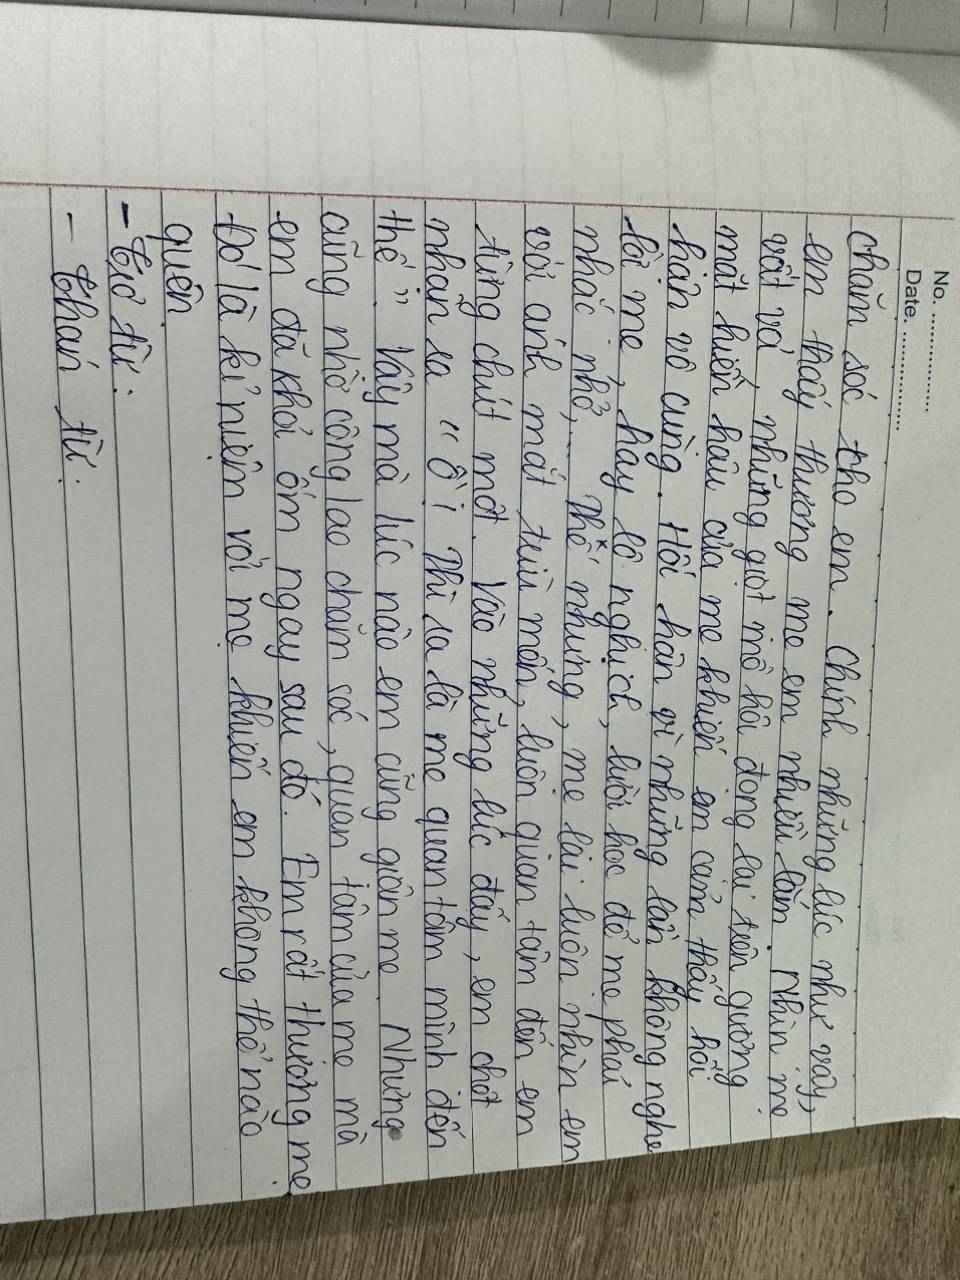 No. ..............
Date. ..............
chăm sóc cho em. Chính những lúc như vậy,
em thấy thương mẹ em nhiều lắm. Nhìn mẹ
vất vả, những giọt mồ hôi đọng lại trên gương
mặt hiền hậu của mẹ khiến em cảm thấy hối
hận vô cùng. Hối hận vì những lần không nghe
lời mẹ, hay lô nghịch, lười học để mẹ phải
nhắc nhở,... Thế nhưng, mẹ lại luôn nhìn em
với ánh mắt trìu mến, luôn quan tâm đến em
từng chút một. Vào những lúc đấy, em chợt
nhận ra "Ồ! Thì ra là mẹ quan tâm mình đến
thế". Vậy mà lúc nào em cũng giận mẹ. Nhưng
cũng nhờ công lao chăm sóc, quan tâm của mẹ mà
em đã khỏi ốm ngay sau đó. Em rất thương mẹ.
Đó là kỉ niệm với mẹ khiến em không thể nào
quên.
- Trợ từ:
- Thán từ: